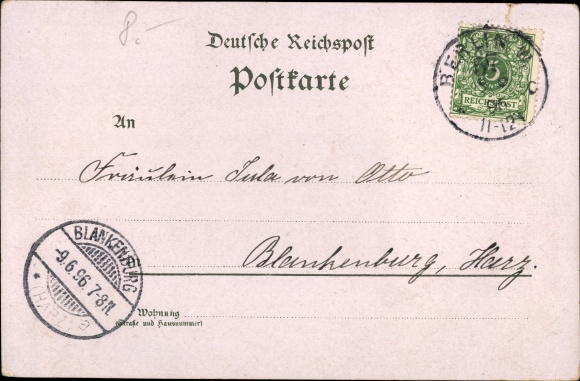 8.-
Deutsche Reichspost
Postkarte
BERLIN W
5
REICHSPOST
11-12V
An
Fräulein Jula von Otto
Blankenburg, Harz.
BLANKENBURG
-9.6.96.7-8N.
Wohnung
(Straße und Hausnummer)